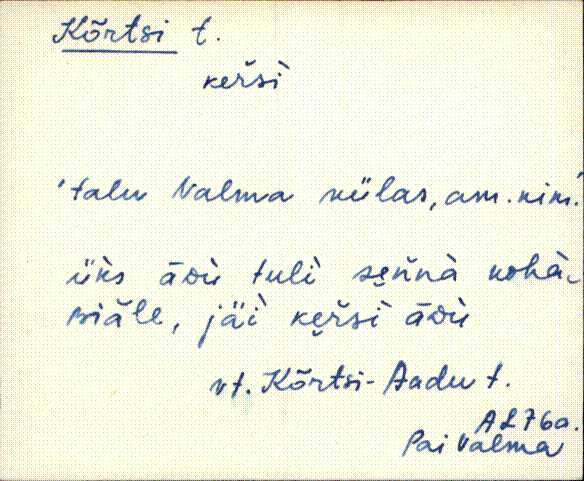 Kõrtsi t.
keršì
'talu Valma külas, am. nim.
üks āđù tulì sen̆nà kohà-
piäle, jäì keršì āđù
vt. Kõrtsi-Aadu t.
AL76a.
Pai Valma